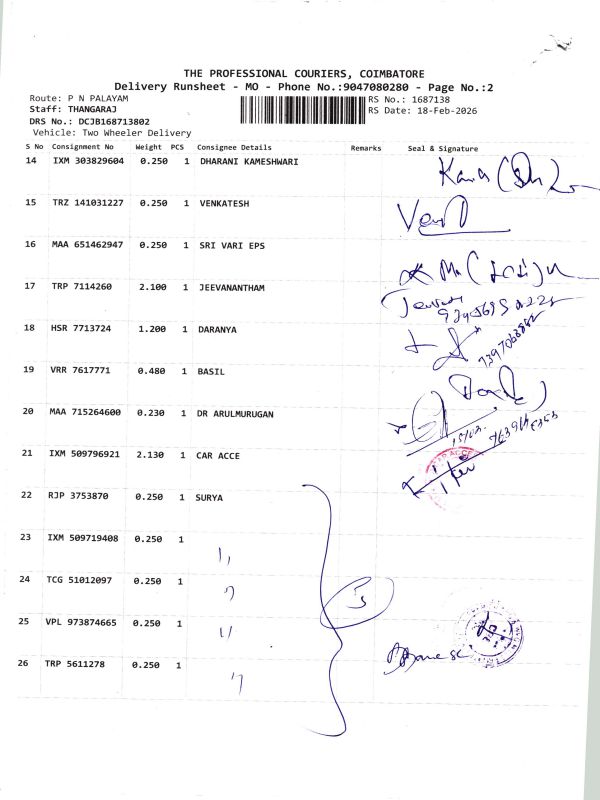 THE PROFESSIONAL COURIERS, COIMBATORE
Delivery Runsheet - MO - Phone No.:9047080280 - Page No.:2
Route: P N PALAYAM RS No.: 1687138
Staff: THANGARAJ RS Date: 18-Feb-2026
DRS No.: DCJB168713802
Vehicle: Two Wheeler Delivery
S No Consignment No Weight PCS Consignee Details Remarks Seal & Signature
14 IXM 303829604 0.250 1 DHARANI KAMESHWARI
15 TRZ 141031227 0.250 1 VENKATESH
16 MAA 651462947 0.250 1 SRI VARI EPS
17 TRP 7114260 2.100 1 JEEVANANTHAM
18 HSR 7713724 1.200 1 DARANYA
19 VRR 7617771 0.480 1 BASIL
20 MAA 715264600 0.230 1 DR ARULMURUGAN
21 IXM 509796921 2.130 1 CAR ACCE
22 RJP 3753870 0.250 1 SURYA
23 IXM 509719408 0.250 1
24 TCG 51012097 0.250 1
25 VPL 973874665 0.250 1
26 TRP 5611278 0.250 1